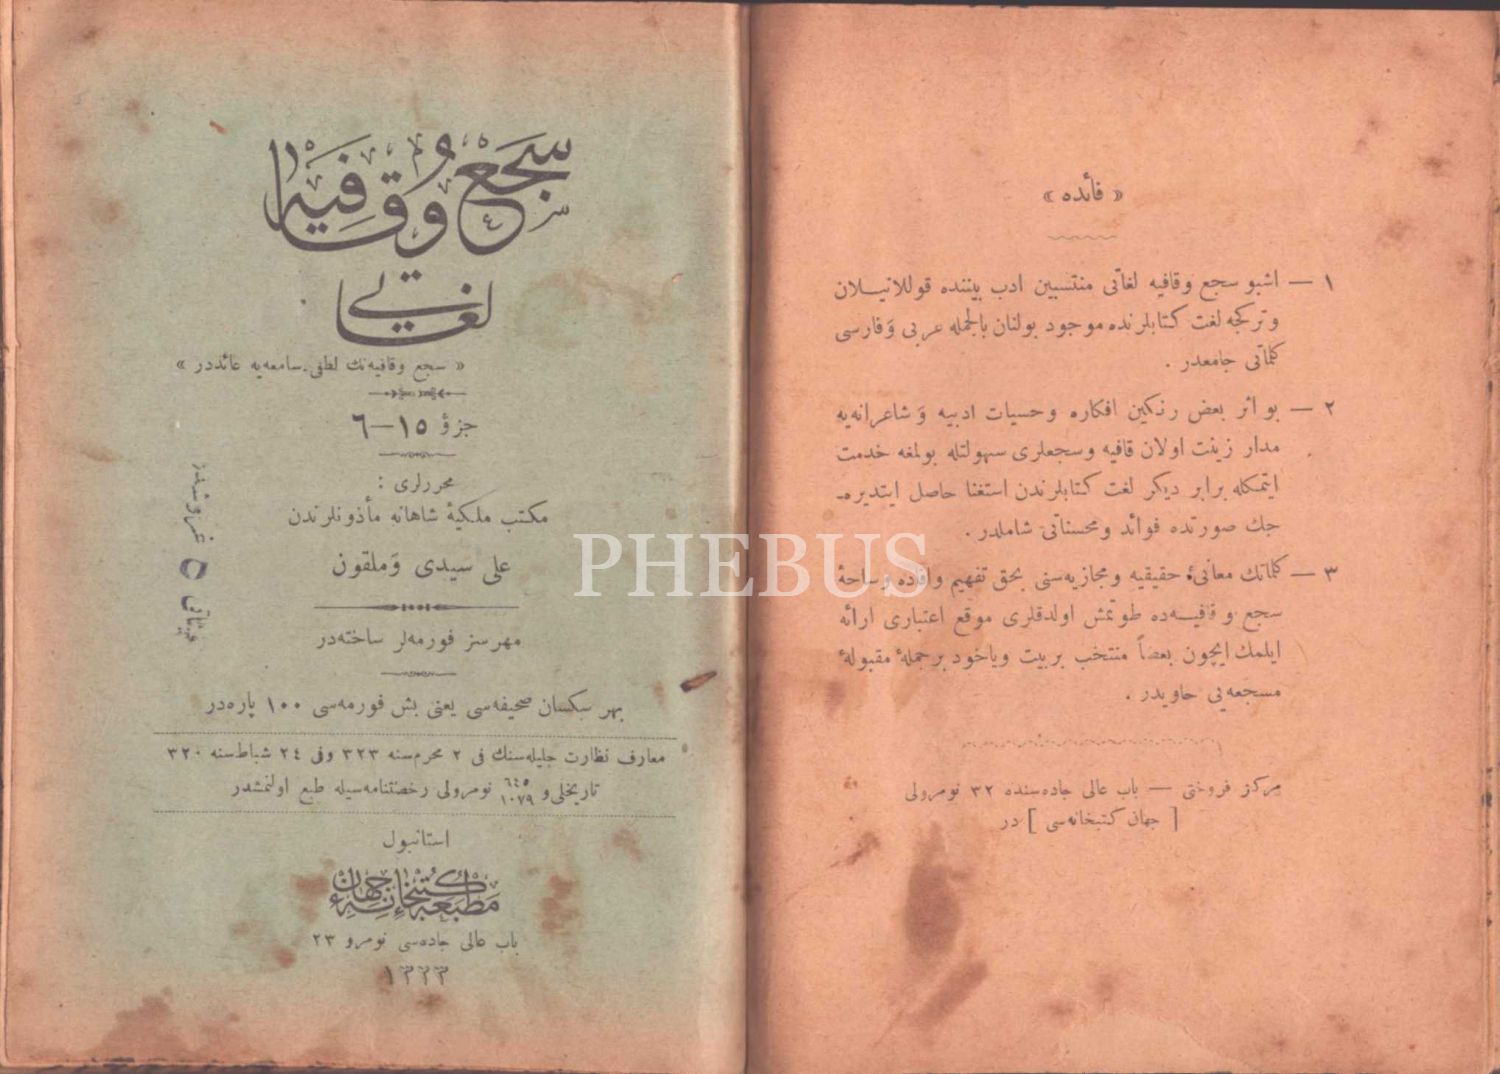 سجع و قافیه
لغاتی
« سجع و قافیه‌نك لطفی سامعه‌یه عائددر »
جزؤ ١٥—٦
محررلری :
مکتب ملکیهٔ شاهانه مأذونلرندن
علی سیدی وَ ملقون
مهرسز فورمه‌لر ساخته‌در
بهر سکسان صحیفه‌سی یعنی بش فورمه‌سی ١٠٠ پاره‌در
معارف نظارت جلیله‌سنك فی ٢ محرم سنه ٣٢٣ وفی ٢٤ شباط سنه ٣٢٠
تاریخلی و ٦٤٥ / ١٠٧٩ نومرولی رخصتنامه‌سیله طبع اولنمشدر
استانبول
مطبعهٔ کتبخانهٔ جهان
باب عالی جاده‌سی نومرو ٢٣
١٣٢٣
« فائده »
١ — اشبو سجع وقافیه لغاتی منتسبین ادب بیننده قوللانیلان
وترکجه لغت کتابلرنده موجود بولنان بالجمله عربی وَ فارسی
کلماتی جامعدر .
٢ — بو اثر بعض رنکین افکاره وحسیات ادبیه وَ شاعرانه‌یه
مدار زینت اولان قافیه وسجعلری سهولتله بولمغه خدمت
ایتمکله برابر دیکر لغت کتابلرندن استغنا حاصل ایتدیره‌-
جك صورتده فوائد ومحسناتی شاملدر .
٣ — کلماتك معانیٔ حقیقیه ومجازیه‌سنی بحق تفهیم وافاده وساحهٔ
سجع وقافیه‌ده طوتمش اولدقلری موقع اعتباری ارائه
ایلمك ایچون بعضاً منتخب بربیت ویاخود برجملهٔ مقبولهٔ
مسجعه‌یی حاویدر .
مرکز فروختی — باب عالی جاده‌سنده ٣٢ نومرولی
[ جهان کتبخانه‌سی ] در
PHEBUS